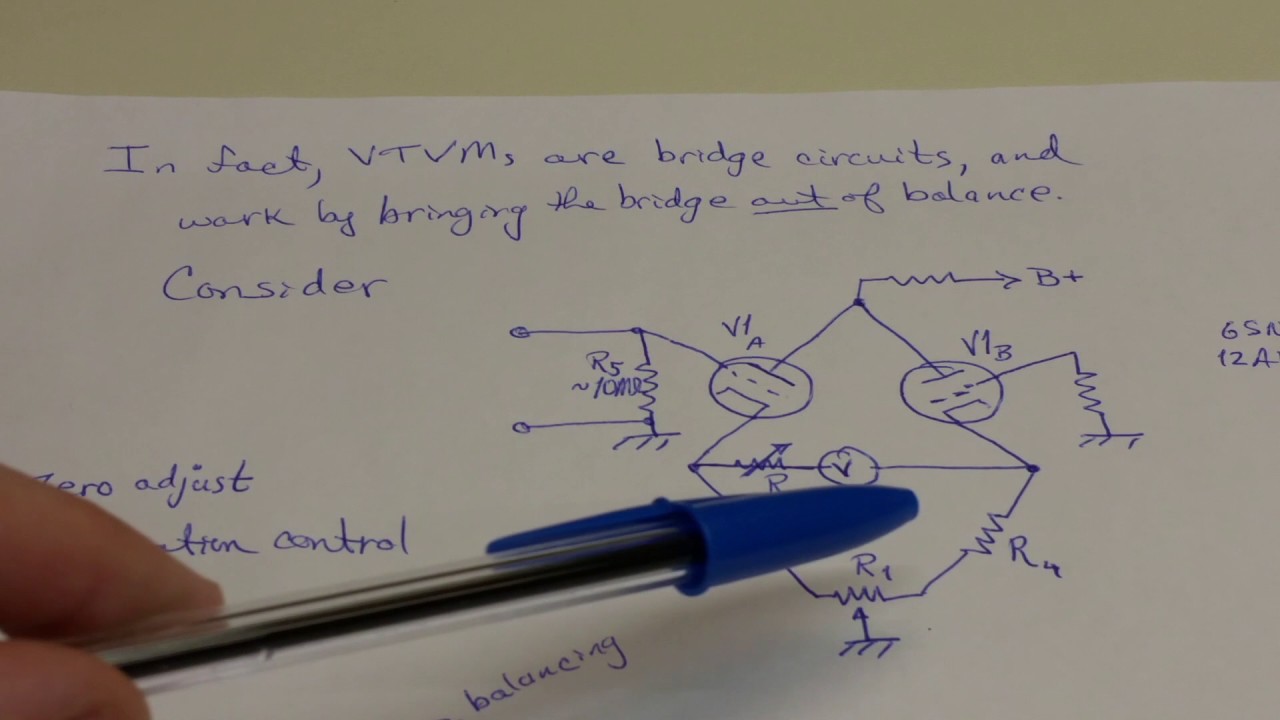 In fact, VTVMs are bridge circuits, and
work by bringing the bridge out of balance.
Consider
B+
V1A
V1B
R5
~10MΩ
V
R
zero adjust
control
R1
R4
balancing